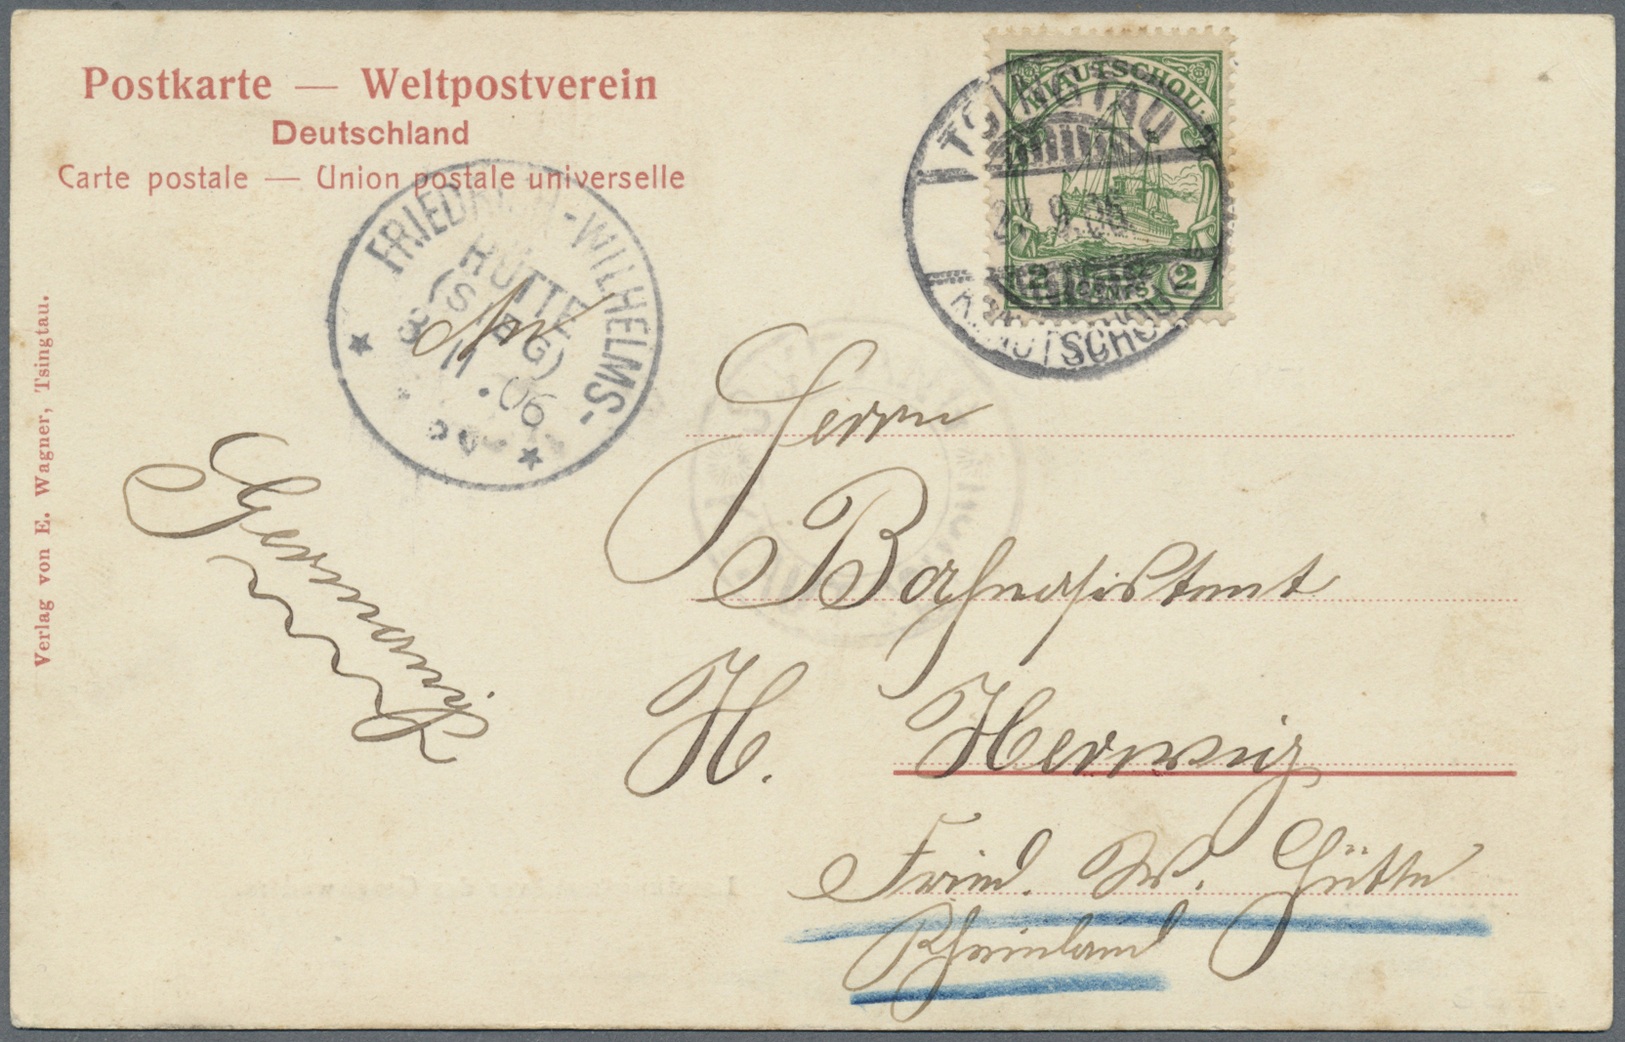 Postkarte — Weltpostverein
Deutschland
Carte postale — Union postale universelle
Verlag von E. Wagner, Tsingtau.
KIAUTSCHOU
2 CENTS 2
TSINGTAU
27.9.06
KIAUTSCHOU
FRIEDRICH-WILHELMS-
HÜTTE
(SIEG)
8.11.06
An
Herrn
Bahnassistent
H. Herwig
Fried. W. Hütte
Rheinland
Germania